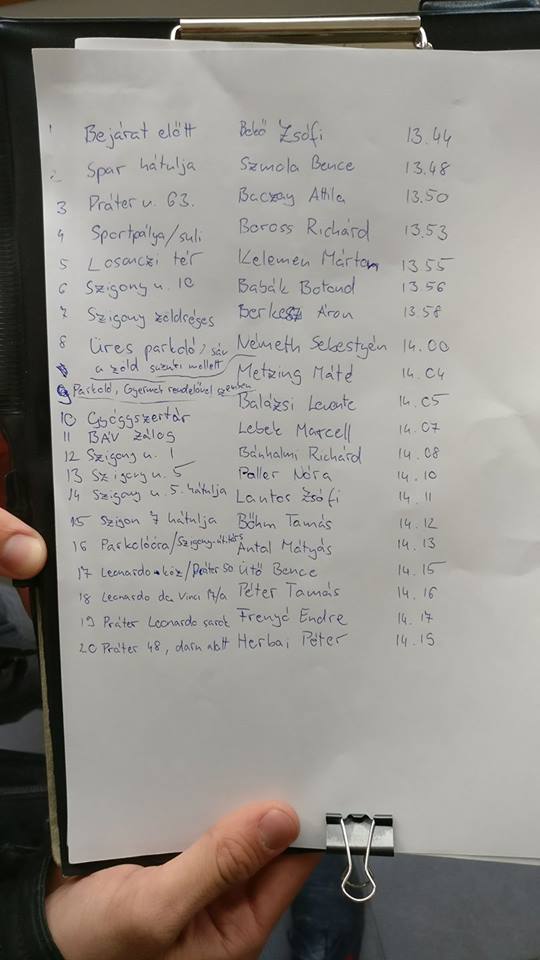 1 Bejárat előtt Bekő Zsófi 13.44
2 Spar hátulja Szmola Bence 13.48
3 Práter u. 63. Baczay Attila 13.50
4 Sportpálya/suli Boross Richárd 13.53
5 Losonczi tér Kelemen Márton 13.55
6 Szigony u. 10 Babák Botond 13.56
7 Szigony zöldséges Berkesz Áron 13.58
8 Üres parkoló, sáv Németh Sebestyén 14.00
a zöld suzuki mellett Metzing Máté 14.04
9 Parkoló, Gyermek rendelővel szemben
Balázsi Levente 14.05
10 Gyógyszertár Lebek Marcell 14.07
11 BÁV zálog
12 Szigony u. 1 Bánhalmi Richárd 14.08
13 Szigony u. 5 Poller Nóra 14.10
14 Szigony u. 5. hátulja Lantos Zsófi 14.11
15 Szigon 7 hátulja Böhm Tamás 14.12
16 Parkolóóra/Szigony- Antal Mátyás 14.13
17 Leonardo köz/Práter 50 Ütő Bence 14.15
18 Leonardo da Vinci Péter Tamás 14.16
19 Práter Leonardo sarok Frenyó Endre 14.17
20 Práter 48, daru alatt Herbai Péter 14.19